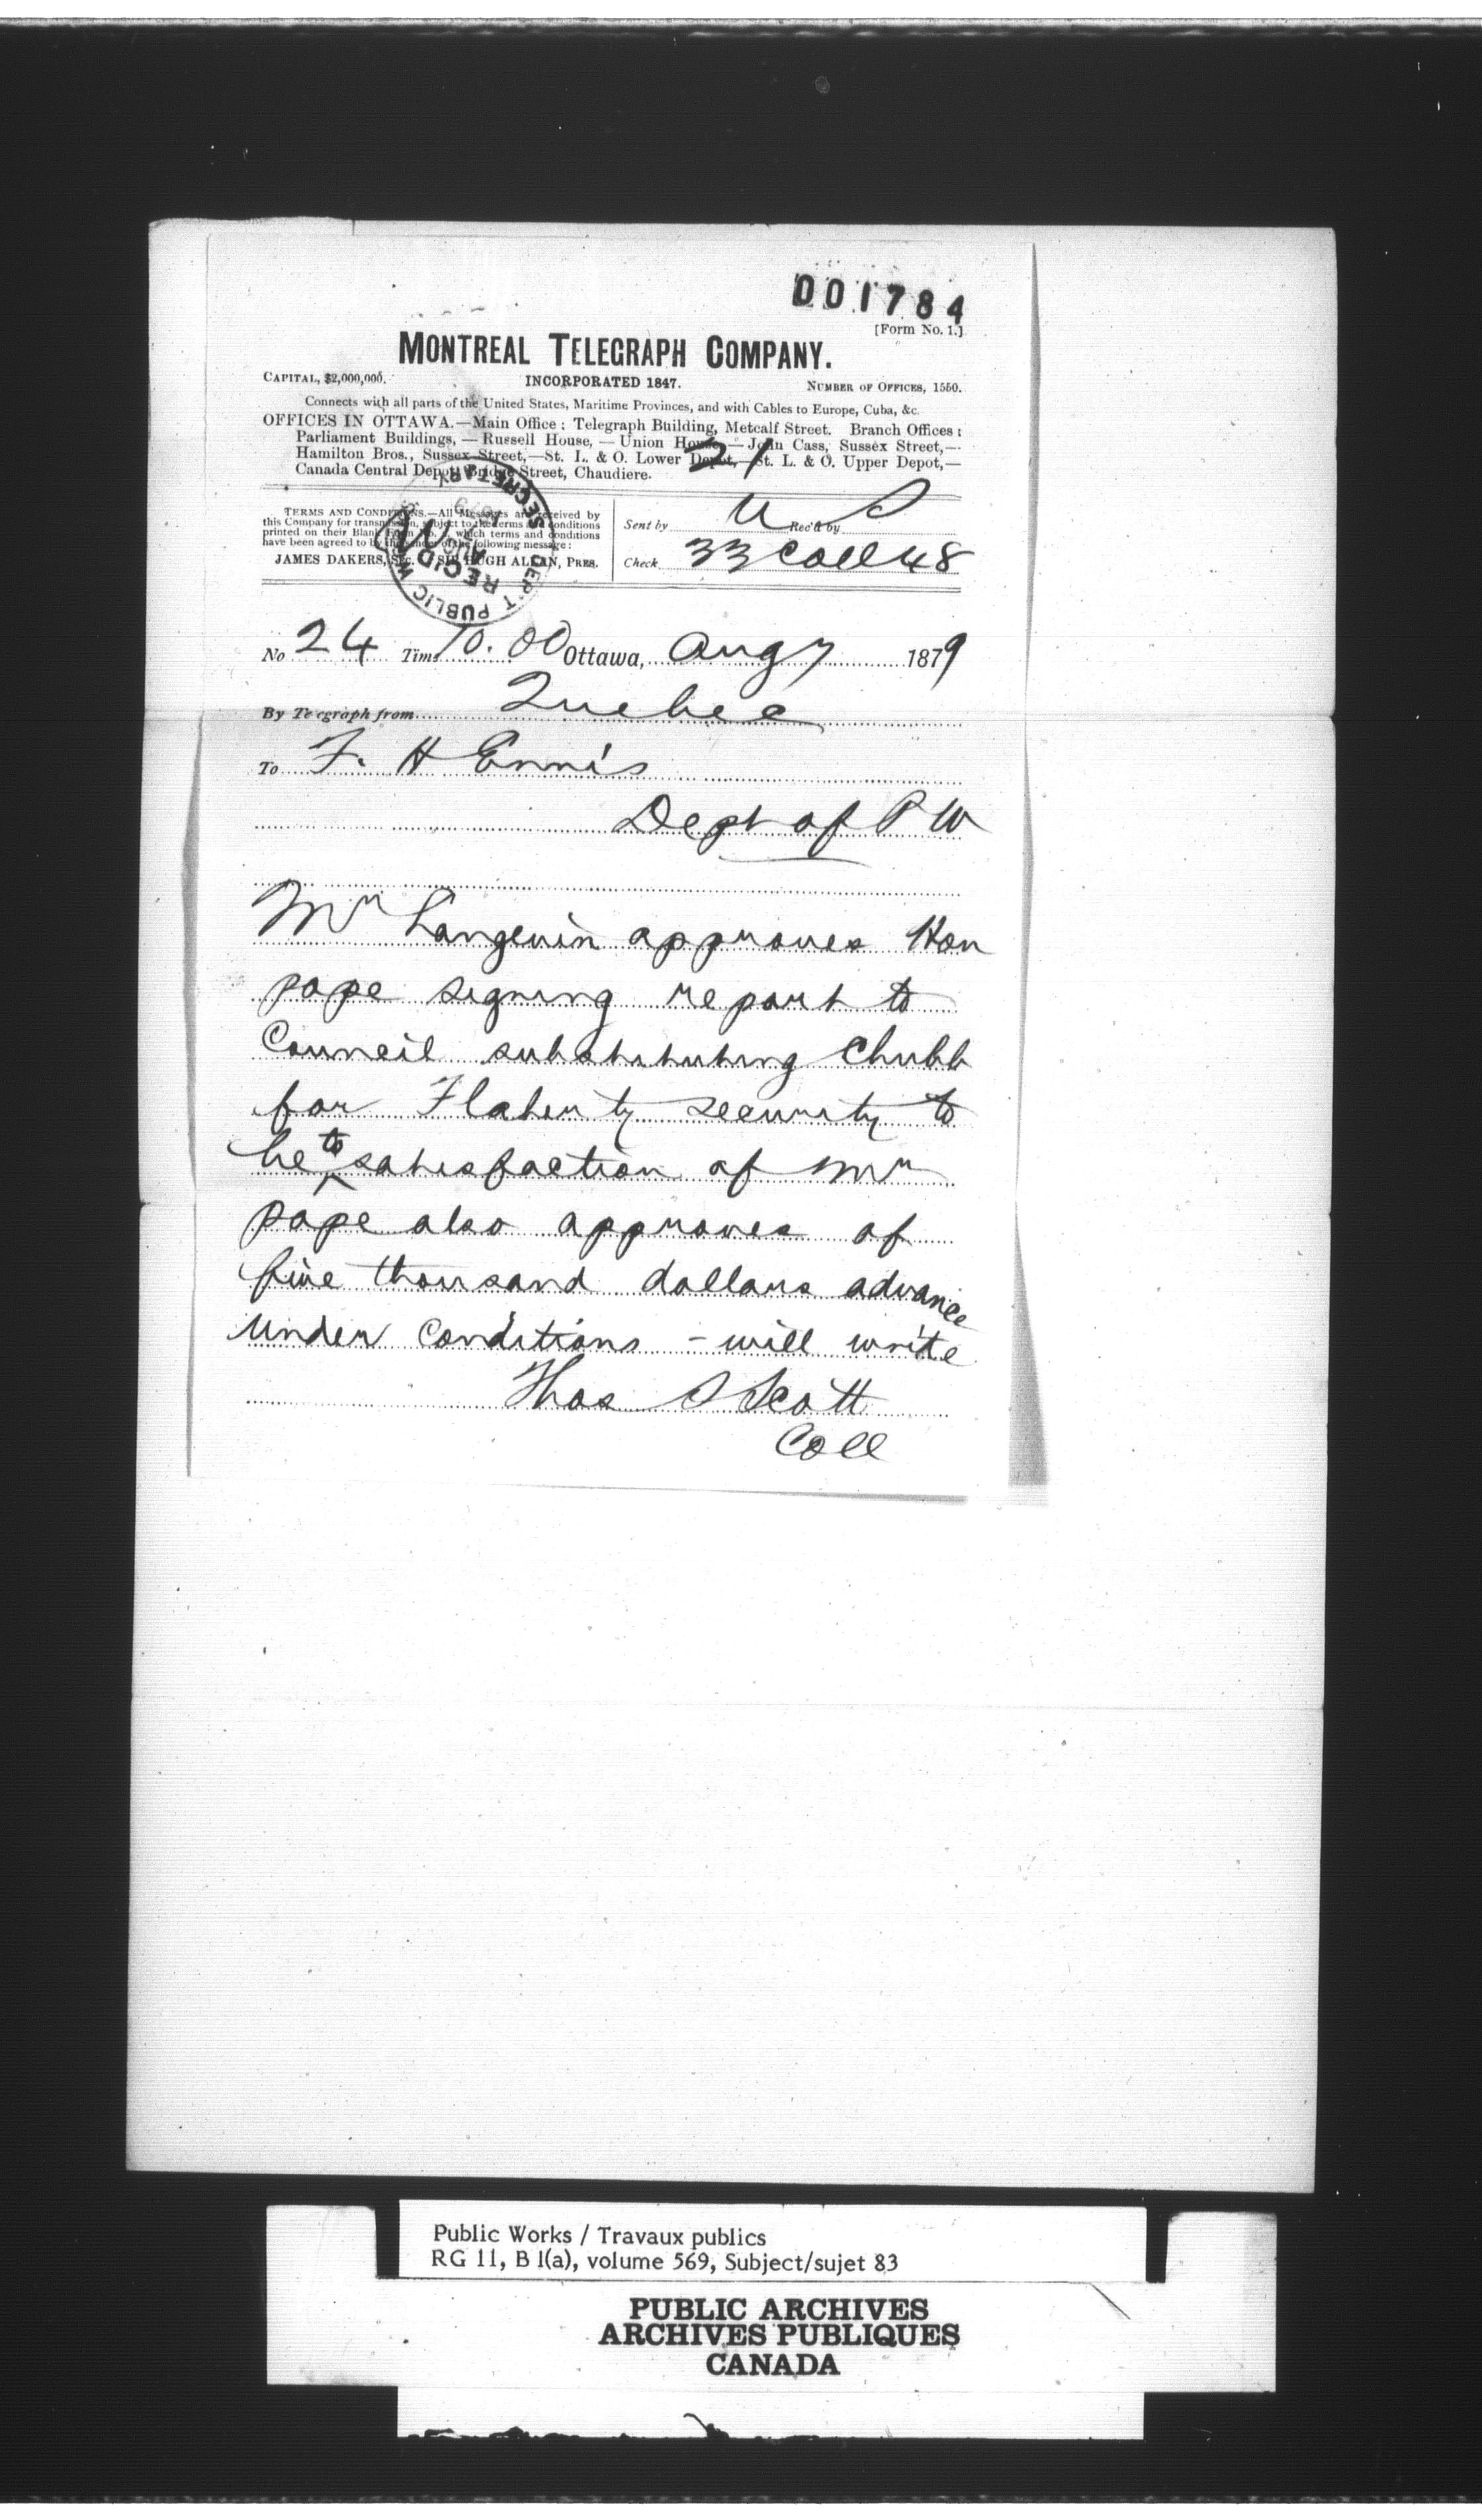 001784
[Form No. 1.]
MONTREAL TELEGRAPH COMPANY.
CAPITAL, $2,000,000. INCORPORATED 1847. NUMBER OF OFFICES, 1550.
Connects with all parts of the United States, Maritime Provinces, and with Cables to Europe, Cuba, &c.
OFFICES IN OTTAWA.—Main Office: Telegraph Building, Metcalf Street. Branch Offices:
Parliament Buildings, — Russell House, — Union House, — John Cass, Sussex Street,—
Hamilton Bros., Sussex Street,—St. L. & O. Lower Depot,—St. L. & O. Upper Depot,—
Canada Central Depot, Bridge Street, Chaudiere.
21
TERMS AND CONDITIONS.—All Messages are received by
this Company for transmission, subject to the terms and conditions
printed on their Blank Form No. 2, which terms and conditions
have been agreed to by the sender of the following message:
JAMES DAKERS, Sec. SIR HUGH ALLAN, PRES.
Sent by Rec'd by
Check 33 Coll 48
DEP'T PUBLIC W
SECRETAR
REC'D
AUG
No 24 Time 10.00 Ottawa, Aug 7 1879
By Telegraph from Quebec
To F. H Ennis
Dept of P W
Mr Langevin approves Hon
pope signing report to
Council substituting Chubb
for Flaherty security to
be to satisfaction of Mr
pope also approves of
five thousand dollars advance
under conditions - will write
Thos S Scott
Coll
Public Works / Travaux publics
RG 11, B 1(a), volume 569, Subject/sujet 83
PUBLIC ARCHIVES
ARCHIVES PUBLIQUES
CANADA